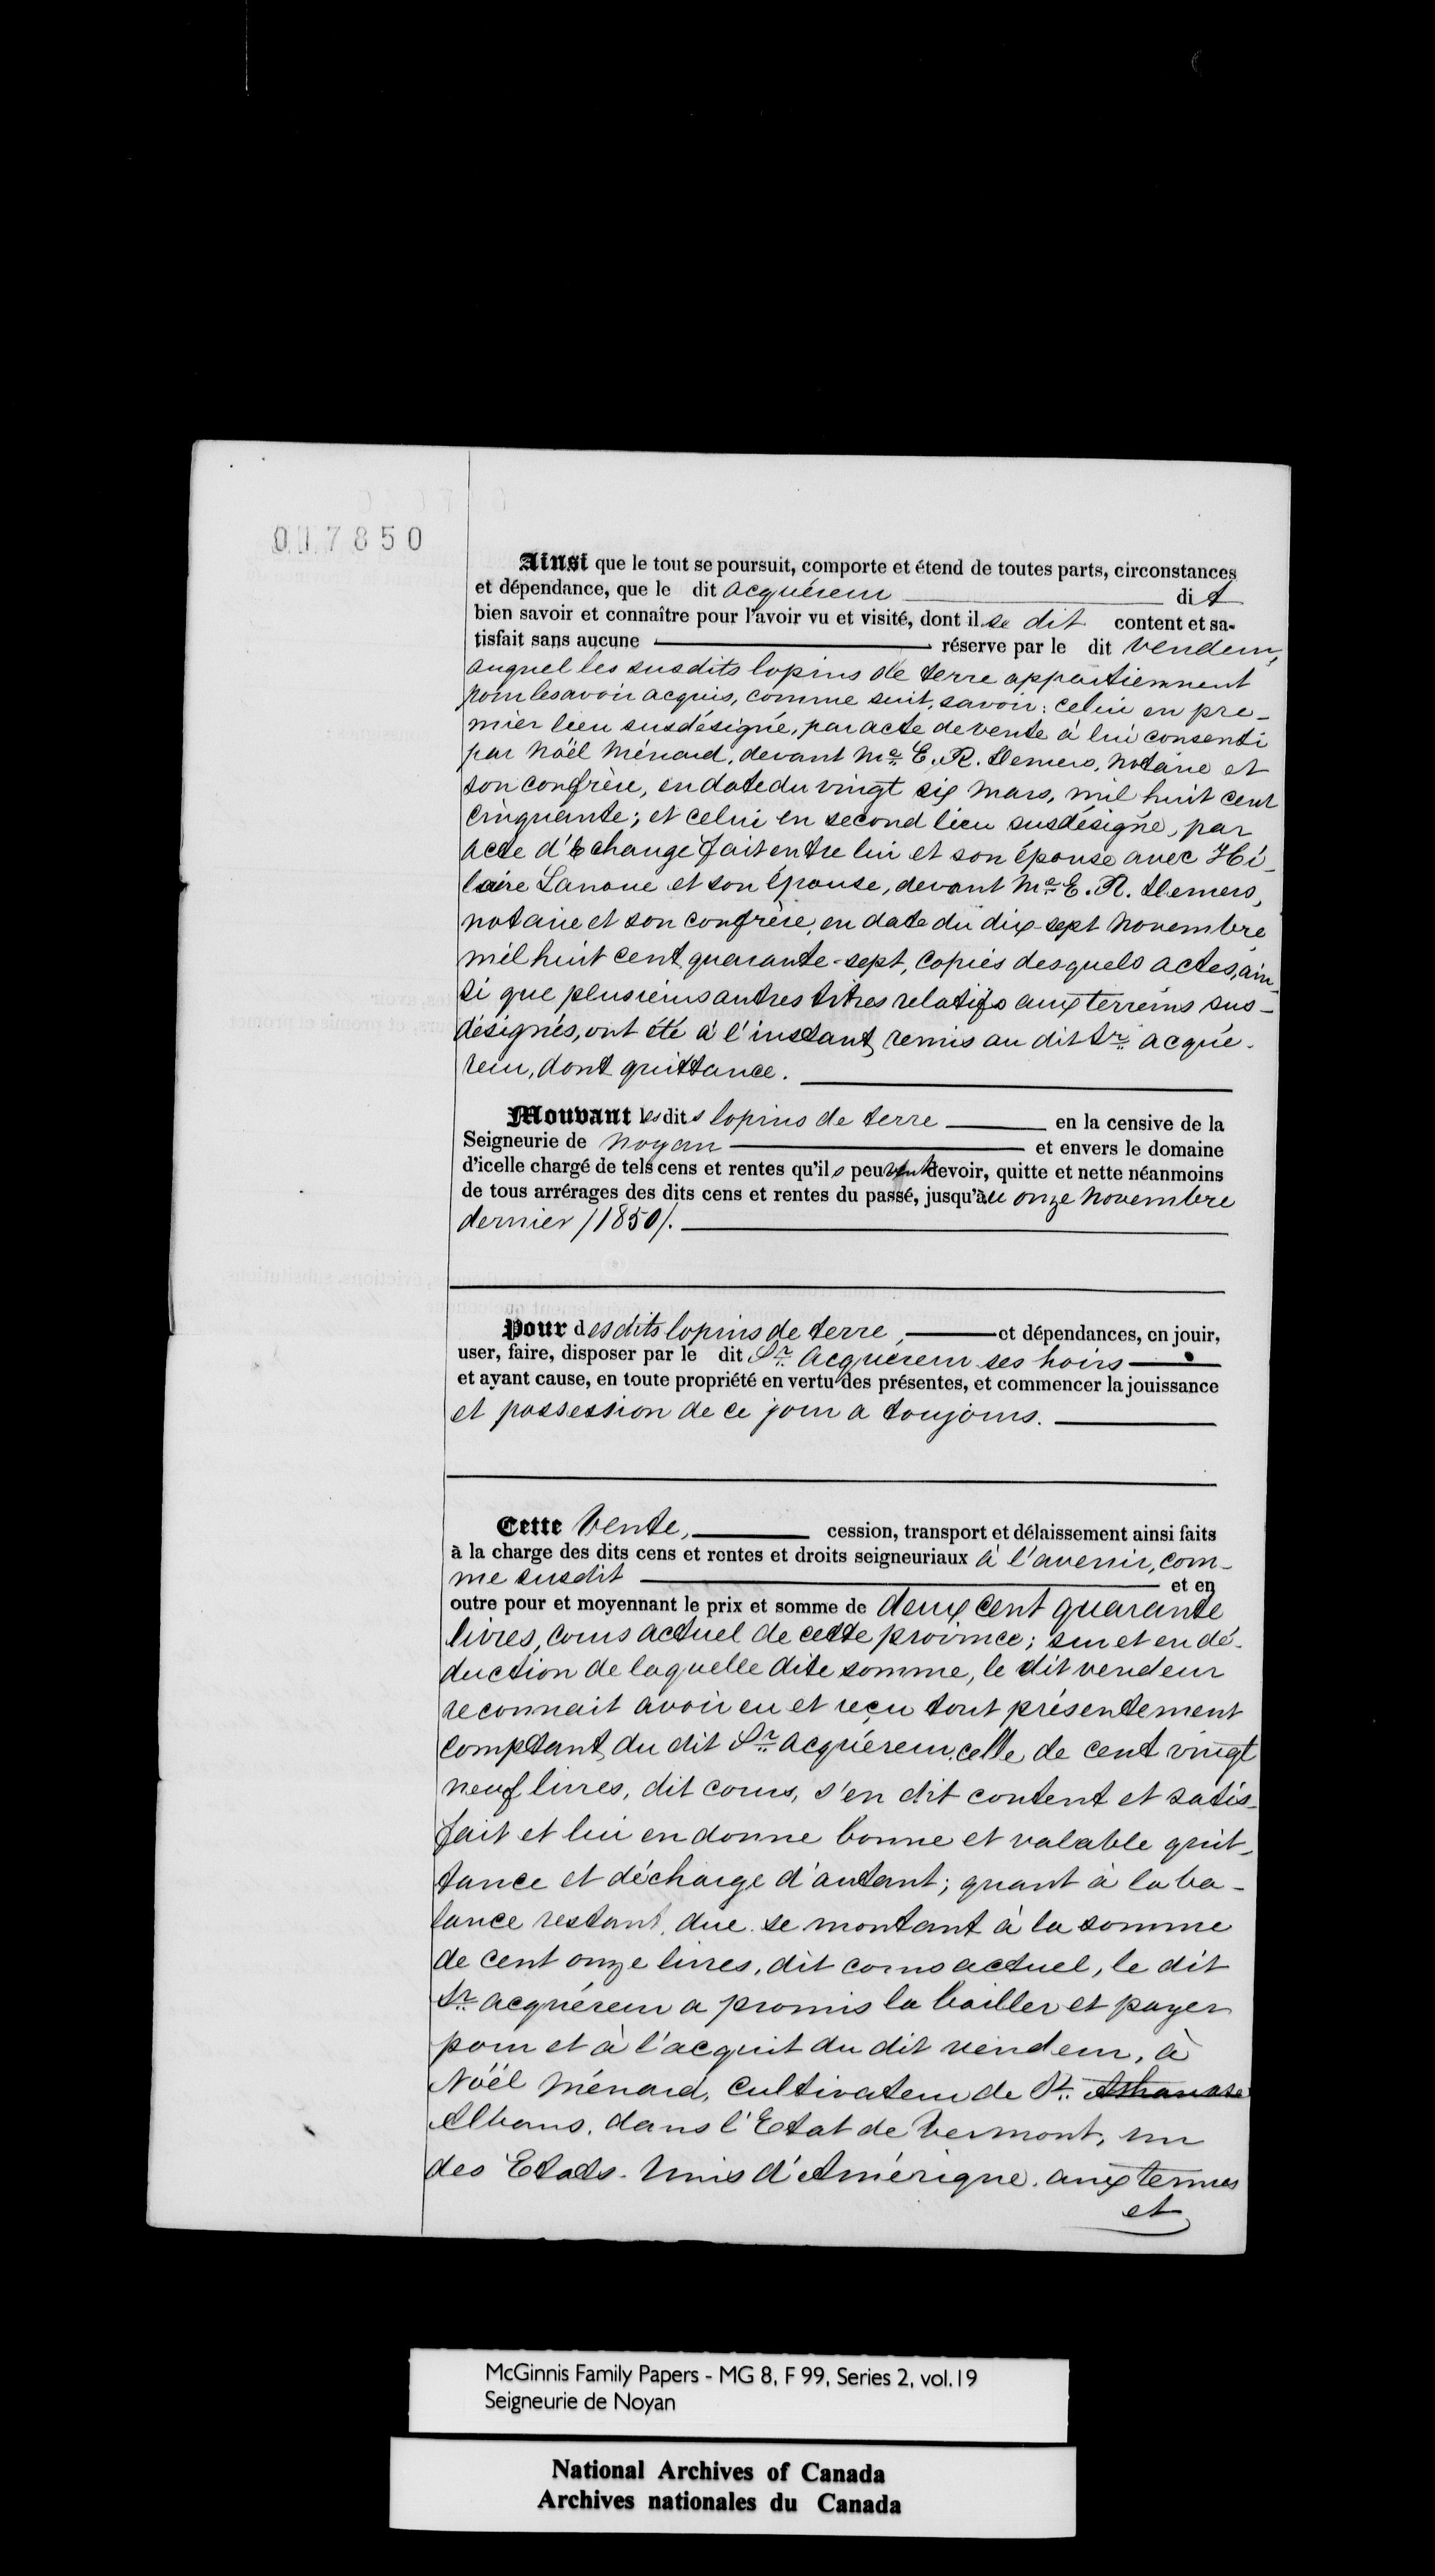 017850
Ainsi que le tout se poursuit, comporte et étend de toutes parts, circonstances
et dépendance, que le dit acquéreur dit
bien savoir et connaître pour l'avoir vu et visité, dont il se dit content et sa-
tisfait sans aucune réserve par le dit vendeur,
auquel les susdits lopins de terre appartiennent
pour les avoir acquis, comme suit, savoir: celui en pre-
mier lieu susdésigné, par acte de vente à lui consenti
par Noël Ménard, devant Me. E. R. Demers, notaire et
son confrère, en date du vingt six mars, mil huit cent
cinquante; et celui en second lieu susdésigné, par
acte d'Echange fait entre lui et son épouse avec Hi-
laire Lanoue et son épouse, devant Me. E. R. Demers,
notaire et son confrère, en date du dix-sept novembre
mil huit cent quarante-sept, copies desquels actes, ain-
si que plusieurs autres titres relatifs aux terreins sus-
désignés, ont été à l'instant remis au dit Sr. acqué-
reur, dont quittance.
Mouvant les dits lopins de terre en la censive de la
Seigneurie de Noyan et envers le domaine
d'icelle chargé de tels cens et rentes qu'ils peuvent devoir, quitte et nette néanmoins
de tous arrérages des dits cens et rentes du passé, jusqu'au onze novembre
dernier /1850/.
Pour desdits lopins de terre, et dépendances, en jouir,
user, faire, disposer par le dit Sr. acquéreur ses hoirs
et ayant cause, en toute propriété en vertu des présentes, et commencer la jouissance
et possession de ce jour a toujours.
Cette Vente, cession, transport et délaissement ainsi faits
à la charge des dits cens et rentes et droits seigneuriaux à l'avenir, com-
me susdit et en
outre pour et moyennant le prix et somme de deux cent quarante
livres, cours actuel de cette province; sur et en dé-
duction de laquelle dite somme, le dit vendeur
reconnait avoir eu et reçu tout présentement
comptant, du dit Sr. acquéreur, celle de cent vingt
neuf livres, dit cours, s'en dit content et satis-
fait et lui en donne bonne et valable quit-
tance et décharge d'autant; quant à la ba-
lance restant due se montant à la somme
de cent onze livres, dit cours actuel, le dit
Sr. acquéreur a promis la bailler et payer
pour et à l'acquit du dit vendeur, à
Noël Ménard, cultivateur de St. Athanase
Albans, dans l'Etat de Vermont, un
des Etats-Unis d'Amérique, aux termes
et
McGinnis Family Papers - MG 8, F 99, Series 2, vol.19
Seigneurie de Noyan
National Archives of Canada
Archives nationales du Canada